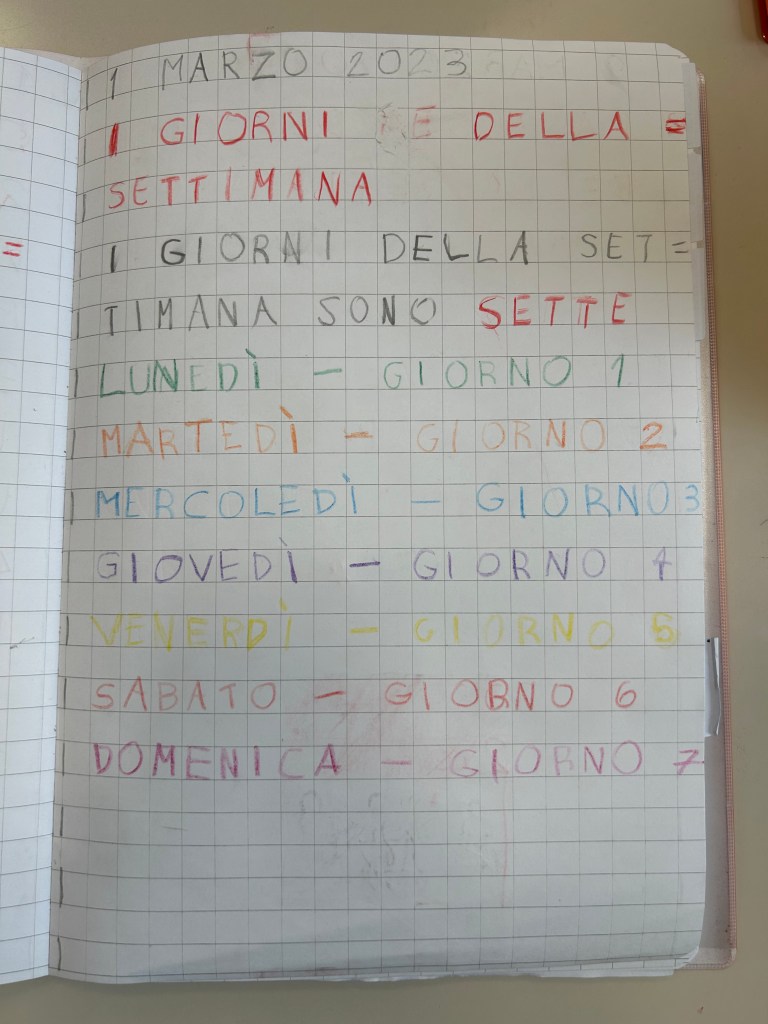 1 MARZO 2023
I GIORNI DELLA =
SETTIMANA
I GIORNI DELLA SET=
TIMANA SONO SETTE
LUNEDÌ - GIORNO 1
MARTEDÌ - GIORNO 2
MERCOLEDÌ - GIORNO 3
GIOVEDÌ - GIORNO 4
VEVERDÌ - GIORNO 5
SABATO - GIORNO 6
DOMENICA - GIORNO 7